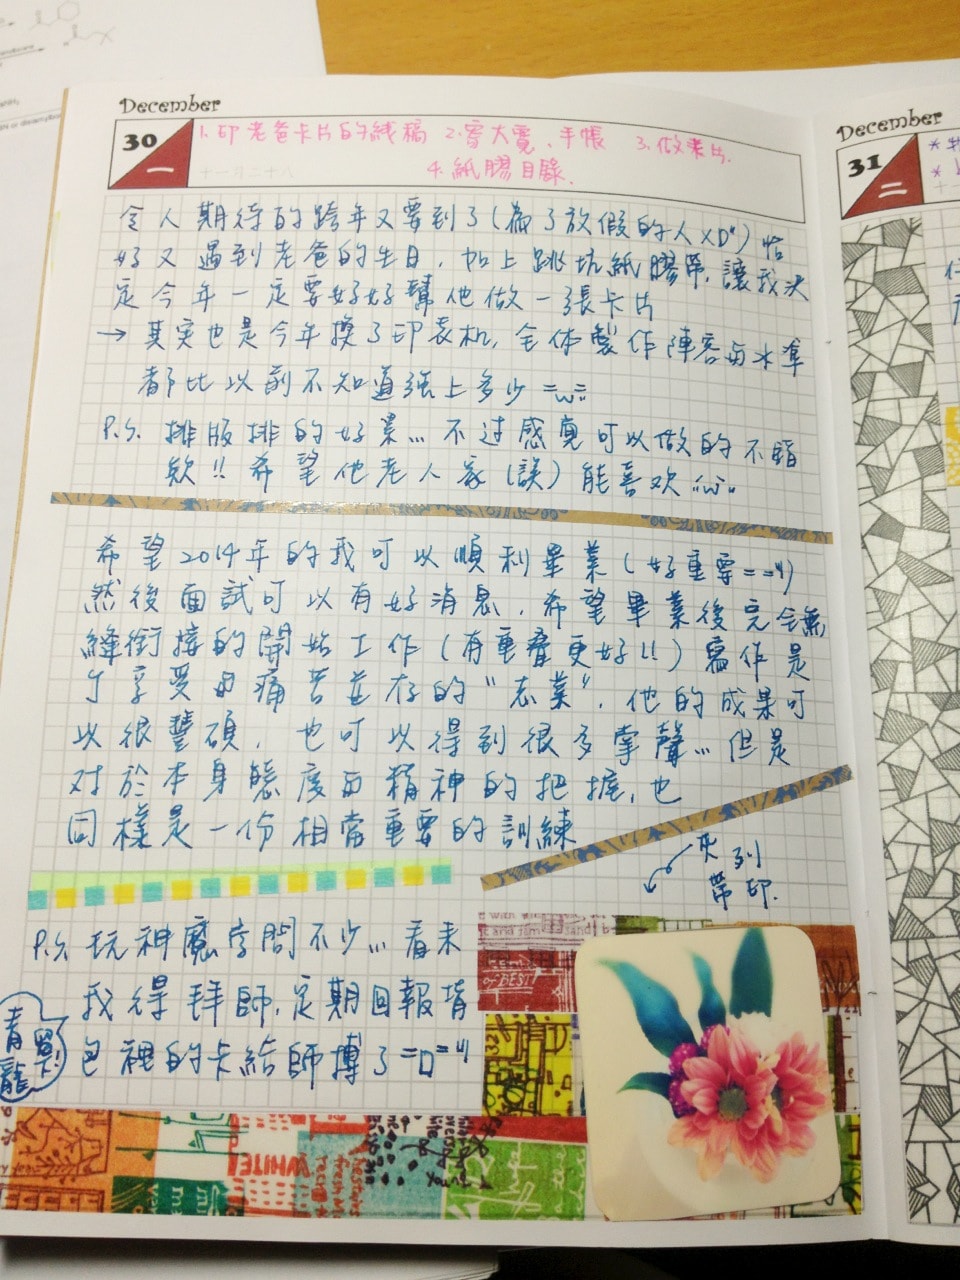 December
30
一
十一月二十八
1.印老爸卡片的線稿 2.寫大覽、手帳 3.做卡片.
4.紙膠目錄.
令人期待的跨年又要到了(為了放假的人XD")恰
好又遇到老爸的生日,加上跳坑紙膠帶,讓我決
定今年一定要好好幫他做一張卡片
→ 其实也是今年換了印表机,全体製作陣容与水準
都比以前不知道強上多少 =w=
P.S. 排版排的好累... 不过感覺可以做的不錯
欸!! 希望他老人家(誤)能喜欢 "w"
希望2014年的我可以順利畢業(好重要==")
然後面試可以有好消息,希望畢業後完全無
縫銜接的開始工作(有重疊更好!!)寫作是
享受与痛苦並存的"志業",他的成果可
以很豐碩,也可以得到很多掌聲...但是
对於本身態度与精神的把握,也
同樣是一份相當重要的訓練
列
帶印.
P.S. 玩神魔字問不少... 看來
我得拜師,定期回報背
包裡的卡給師傅了 =口="
青龍
of BEST
WHITE
December
31
二